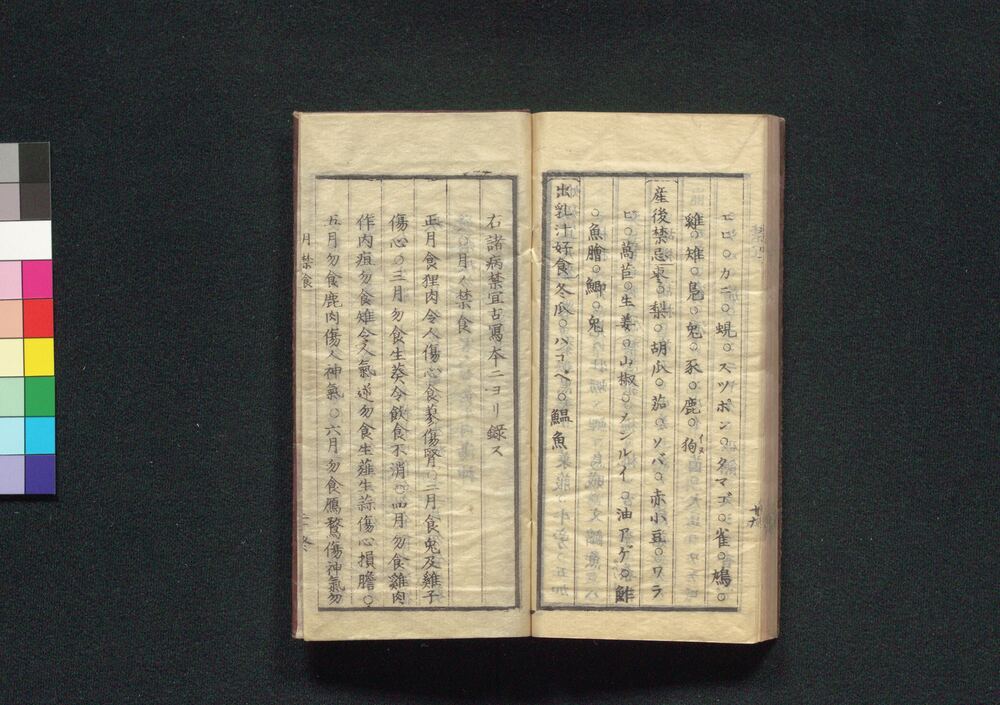 ヒロ。カニ。蜆。スツポン。タマゴ。雀。鳩。
雞。雉。鳧。兎。豕。鹿。狗イヌ
産後禁忌棗。梨。胡瓜。茄。ソバ。赤小豆。ワラ
ヒ。萵苣。生姜。山椒。メンルイ。油アゲ。鮓
。魚膾。鯽。兎
出乳汁好食冬瓜。ハコベ。鰛魚
右諸病禁宜古寫本ニヨリ録ス
月禁食
正月食狸肉令人傷心食蓼傷腎。二月食兎及雞子
傷心。三月勿食生葵令飲食不消。四月勿食雞肉
作内疽勿食雉令人氣逆勿食生薤生蒜傷心損膽。
五月勿食鹿肉傷人神氣。六月勿食鴈鶩傷神氣勿
月禁食